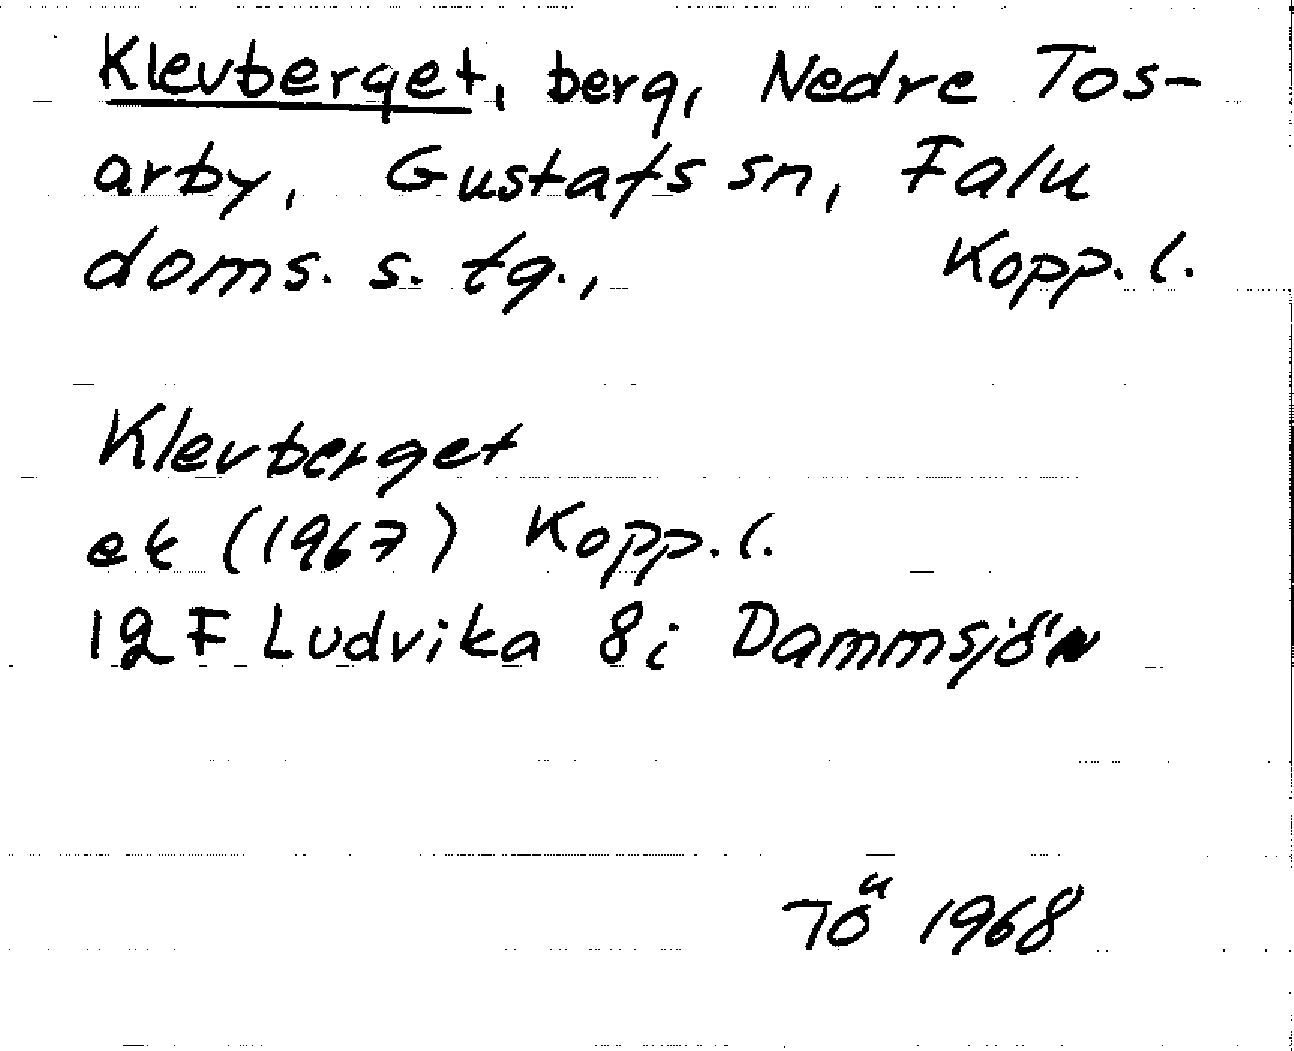 Klevberget, berg, Nedre Tos-
arby, Gustafs sn, Falu
doms. s. tg., Kopp. l.
Klevberget
ek (1967) Kopp. l.
12 F Ludvika 8i Dammsjön
1968